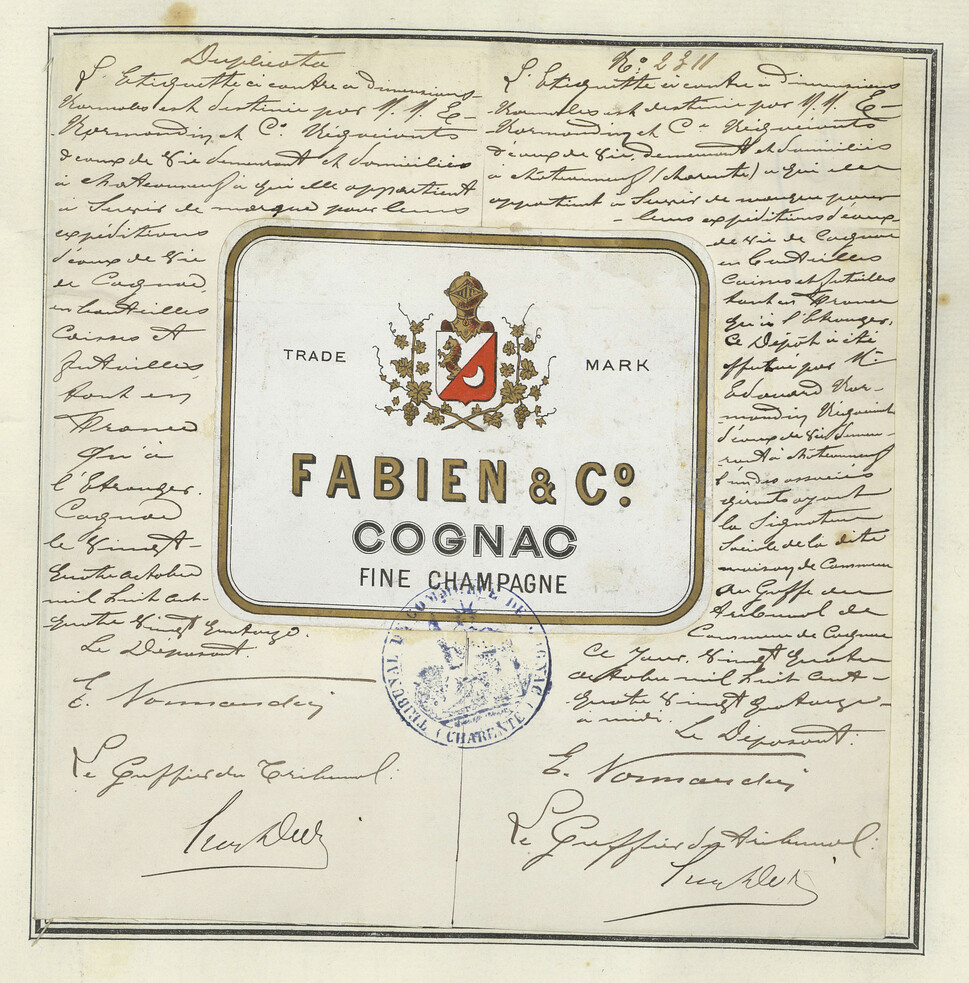 Duplicata
L'Etiquette ci contre à dimensions
Normales est destinée par M. M. E.
Normandin et Co Négociants
d'eaux de Vie demeurant et domiciliés
à Chateauneuf à qui elle appartient
à Servir de marque pour leurs
expéditions
d'eaux de Vie
de Cognac,
en bouteilles
Caisses et
futailles,
tant en
France
qu'à
l'Etranger.
Cognac
le Vingt-
quatre octobre
mil huit cent
quatre Vingt quatorze.
Le Déposant.
E. Normandin
Le Greffier du Tribunal:
No 2311
L'Etiquette ci contre à dimensions
Normales est destinée par M. M. E.
Normandin et Co Négociants
d'eaux de Vie, demeurant et domiciliés
à Châteauneuf (Charente) à qui elle
appartient à Servir de marque pour
leurs expéditions d'eaux-
de Vie de Cognac
en bouteilles
Caisses et futailles
tant en France
qu'à l'Etranger.
Ce Dépôt a été
effectué par Mr
Edouard Nor-
mandin Négociant
d'eaux de Vie demeu-
rant à Châteauneuf
l'un des associés
gérants ayant
la Signature
Sociale de la dite
maison de Commerce
au Greffe du
Tribunal de
Commerce de Cognac
Ce Jour, Vingt quatre
octobre mil huit cent-
quatre Vingt quatorze
à midi.
Le Déposant:
E. Normandin
Le Greffier du Tribunal:
TRADE MARK
FABIEN & Co
COGNAC
FINE CHAMPAGNE
TRIBUNAL DE COMMERCE DE COGNAC
(CHARENTE)